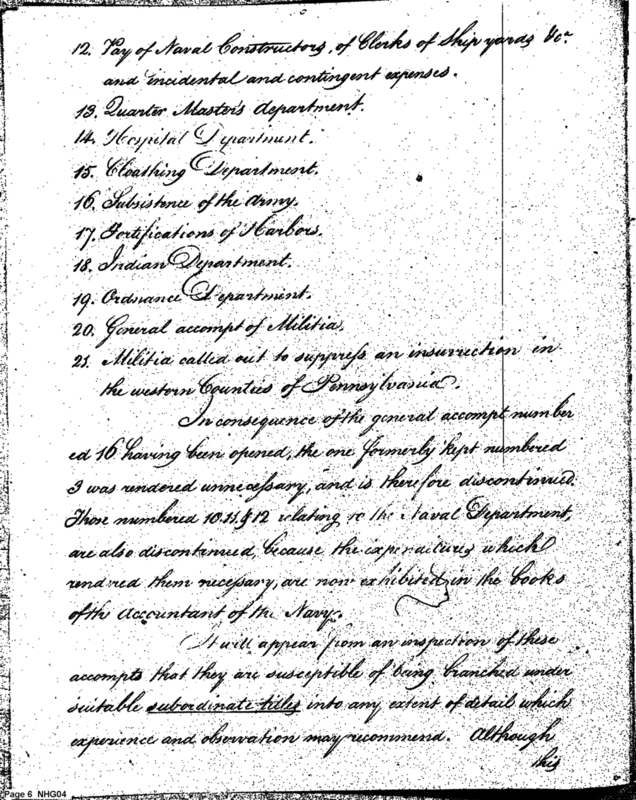 12. Pay of Naval Constructors, of Clerks of Ship yards &c.
and incidental and contingent expenses.
13. Quarter Master's department.
14. Hospital Department.
15. Cloathing Department.
16. Subsistence of the Army.
17. Fortifications of Harbors.
18. Indian Department.
19. Ordnance Department.
20. General accompt of Militia.
21. Militia called out to suppress an insurrection in
the western Counties of Pennsylvania.
In consequence of the general accompt number
ed 16 having been opened, the one formerly kept numbered
3 was rendered unnecessary, and is therefore discontinued.
Those numbered 10.11.& 12 relating to the Naval Department,
are also discontinued, because the expenditures which
rendred them necessary, are now exhibited in the books
of the Accountant of the Navy.
It will appear from an inspection of these
accompts that they are susceptible of being branched under
suitable subordinate titles into any extent of detail which
experience and observation may recommend. Although
this
Page 6 NHG04